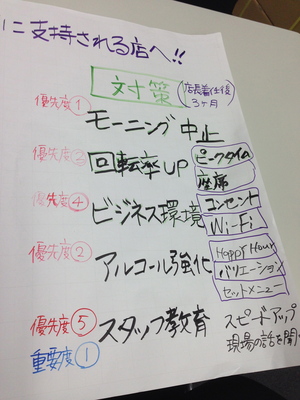 に支持される店へ!!
対策 (店長着任後 3ヶ月)
優先度①
モーニング中止
優先度③
回転率UP ピークタイム 座席
優先度④
ビジネス環境 コンセント Wi-Fi
優先度②
アルコール強化 Happy Hour バリエーション セットメニュー
優先度⑤ スタッフ教育 スピードアップ
重要度① 現場の話を聞